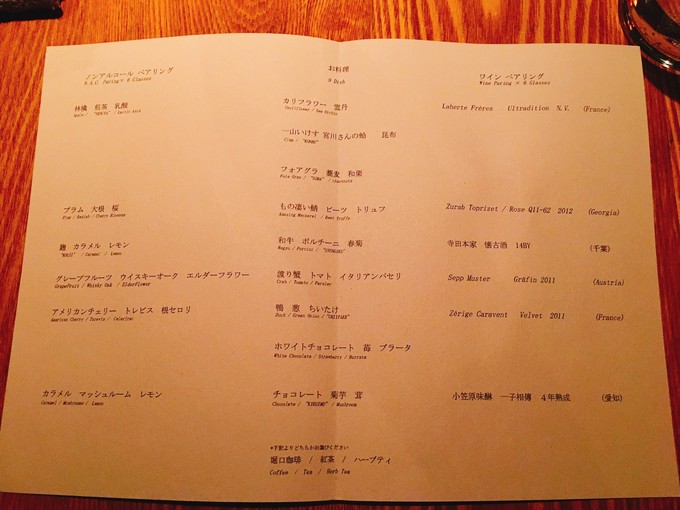 ノンアルコール ペアリング
お料理
9 Dish
ワイン ペアリング
Wine Paring × 6 Glasses
林檎 煎茶 乳酸
カリフラワー 雲丹
Cauliflower / Sea Urchin
Laherte Fréres Ultradition N.V. (France)
一山いけす 宮川さんの蛤 昆布
Clam / "KONBU"
フォアグラ 蕎麦 和栗
Foie Gras / "SOBA" / Chestnut
プラム 大根 桜
Plum / Radish / Cherry Blossom
もの凄い鯖 ビーツ トリュフ
Amazing Mackerel / Beet Truffe
Zurab Toprizet / Rose Q11-62 2012 (Georgia)
麹 カラメル レモン
"KOUJI" / Caramel / Lemon
和牛 ポルチーニ 春菊
Wagyu / Porcini / "SHUNGIKU"
寺田本家 懐古酒 14BY (千葉)
グレープフルーツ ウイスキーオーク エルダーフラワー
Grapefruit / Whisky Oak / Elderflower
渡り蟹 トマト イタリアンパセリ
Crab / Tomato / Parsley
Sepp Muster Gräfin 2011 (Austria)
アメリカンチェリー トレビス 根セロリ
American Cherry / Torevis / Celeriac
鴨 葱 ちいたけ
Duck / Green Onion / "CHIITAKE"
Zérige Caravent Velvet 2011 (France)
ホワイトチョコレート 苺 ブラータ
White Chocolate / Strawberry / Burrata
カラメル マッシュルーム レモン
Caramel / Mushrooms / Lemon
チョコレート 菊芋 茸
Chocolate / "KIKUIMO" / Mushroom
小笠原味醂 一子相傳 4年熟成 (愛知)
*下記よりどちらかお選びください
堀口珈琲 / 紅茶 / ハーブティ
Coffee / Tea / Herb Tea